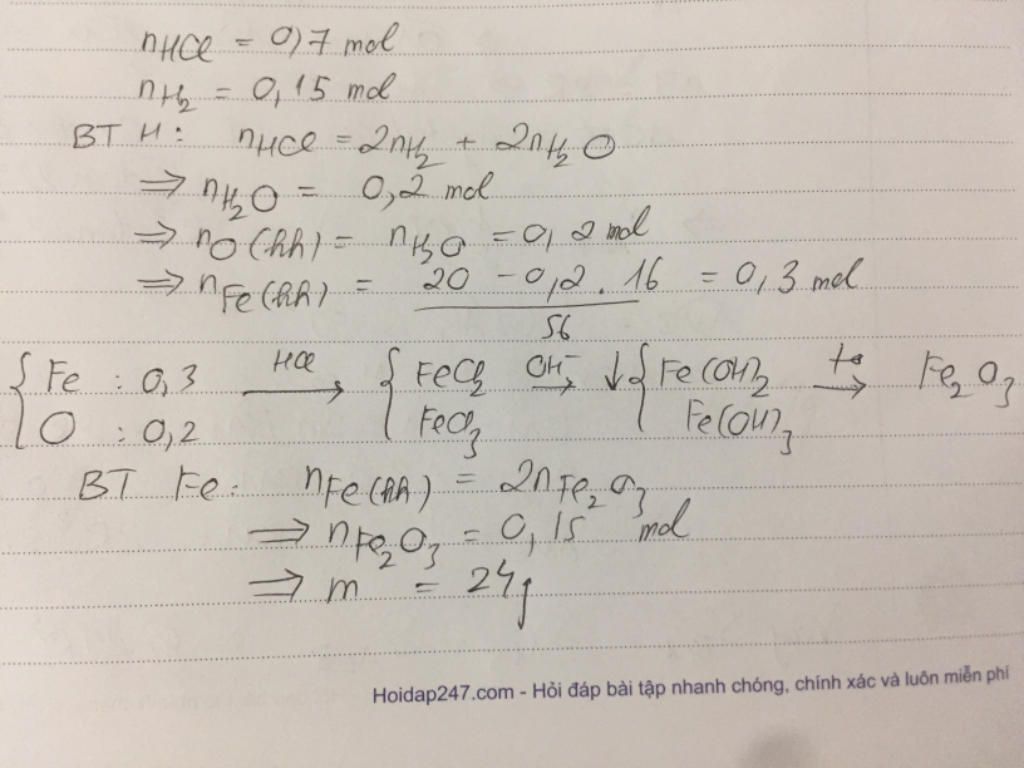 nHCl = 0,7 mol
nH₂ = 0,15 mol
BT H: nHCl = 2nH₂ + 2nH₂O
⇒ nH₂O = 0,2 mol
⇒ nO(hh) = nH₂O = 0,2 mol
⇒ nFe(hh) = (20 - 0,2 . 16) / 56 = 0,3 mol
{ Fe : 0,3 —HCl→ { FeCl₂ —OH⁻→ ↓ { Fe(OH)₂ —t°→ Fe₂O₃
O : 0,2 FeCl₃ Fe(OH)₃
BT Fe: nFe(hh) = 2nFe₂O₃
⇒ nFe₂O₃ = 0,15 mol
⇒ m = 24g
Hoidap247.com - Hỏi đáp bài tập nhanh chóng, chính xác và luôn miễn phí